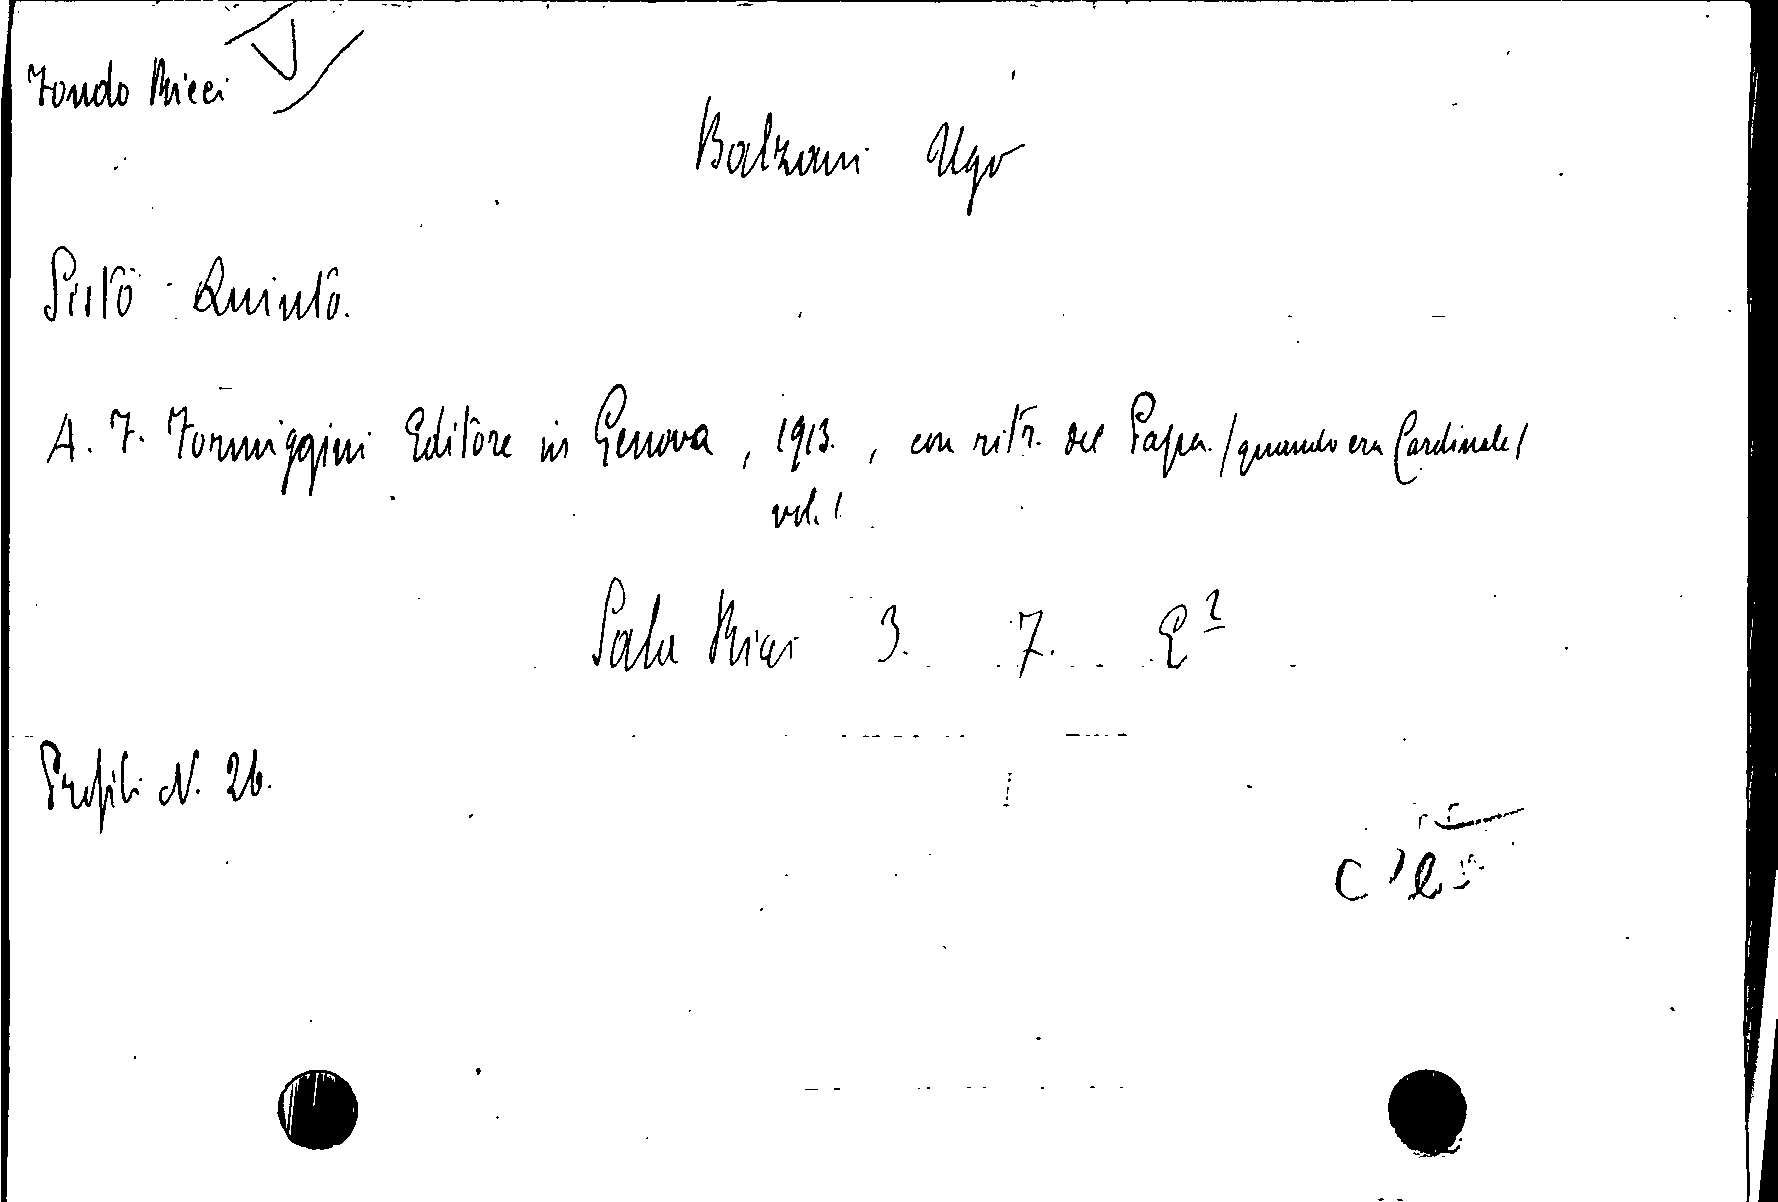 Fondo Ricci
Balzani Ugo
Sisto Quinto.
A. F. Formiggini Editore in Genova, 1913., con ritr. del Papa. /quando era Cardinale/
vol. 1
Sala Ricci 3. 7. E²
Profili N. 26.